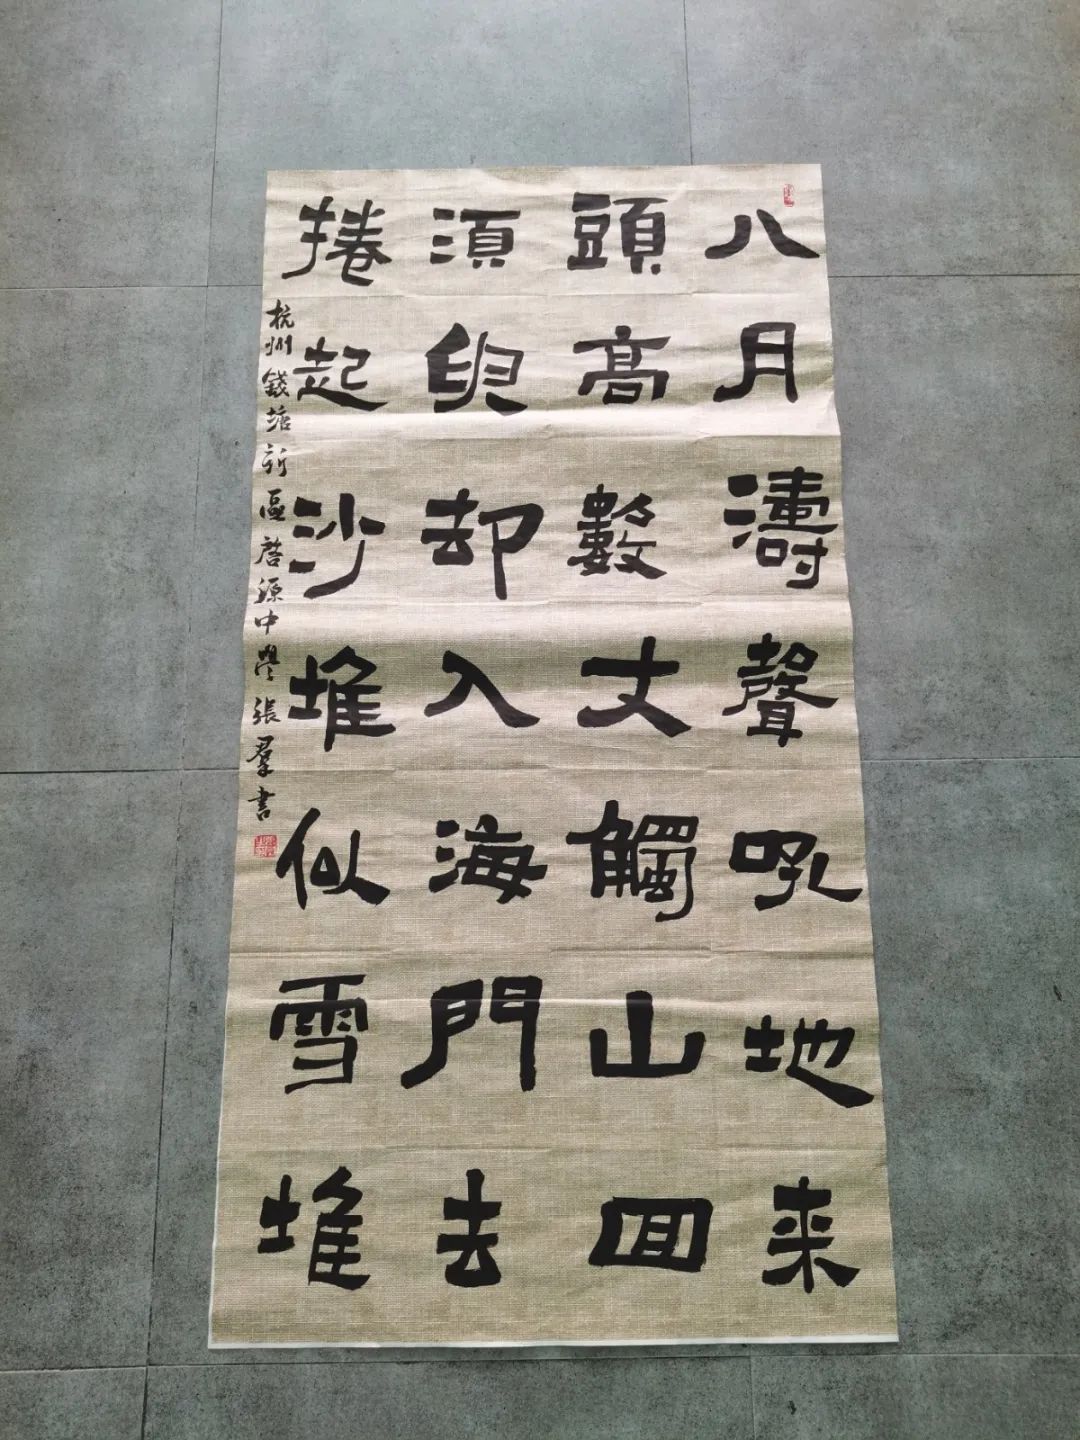 八月濤聲吼地来
頭高數丈觸山回
須臾却入海門去
捲起沙堆似雪堆
杭州錢塘新區啓源中學張羣書